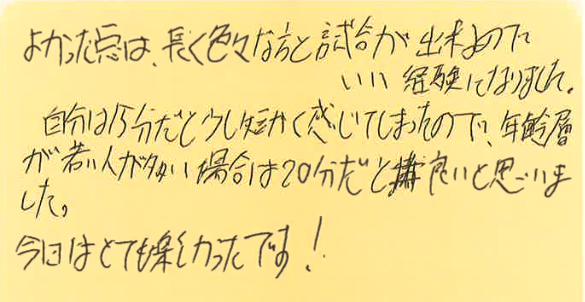 よかった点は、長く色々な方と試合が出来たので
いい経験になりました。
自分は15分だと少し短かく感じてしまったので、年齢層
が若い人が多い場合は20分だと良いと思いま
した。
今日はとても楽しかったです！